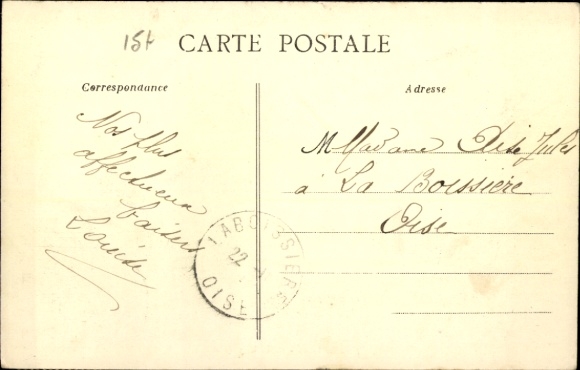 15t
CARTE POSTALE
Correspondance
Adresse
Nos plus
affectueux
baisers
Louise
Madame Jules
à La Boissière
Oise
LABOISSIERE
22
OISE